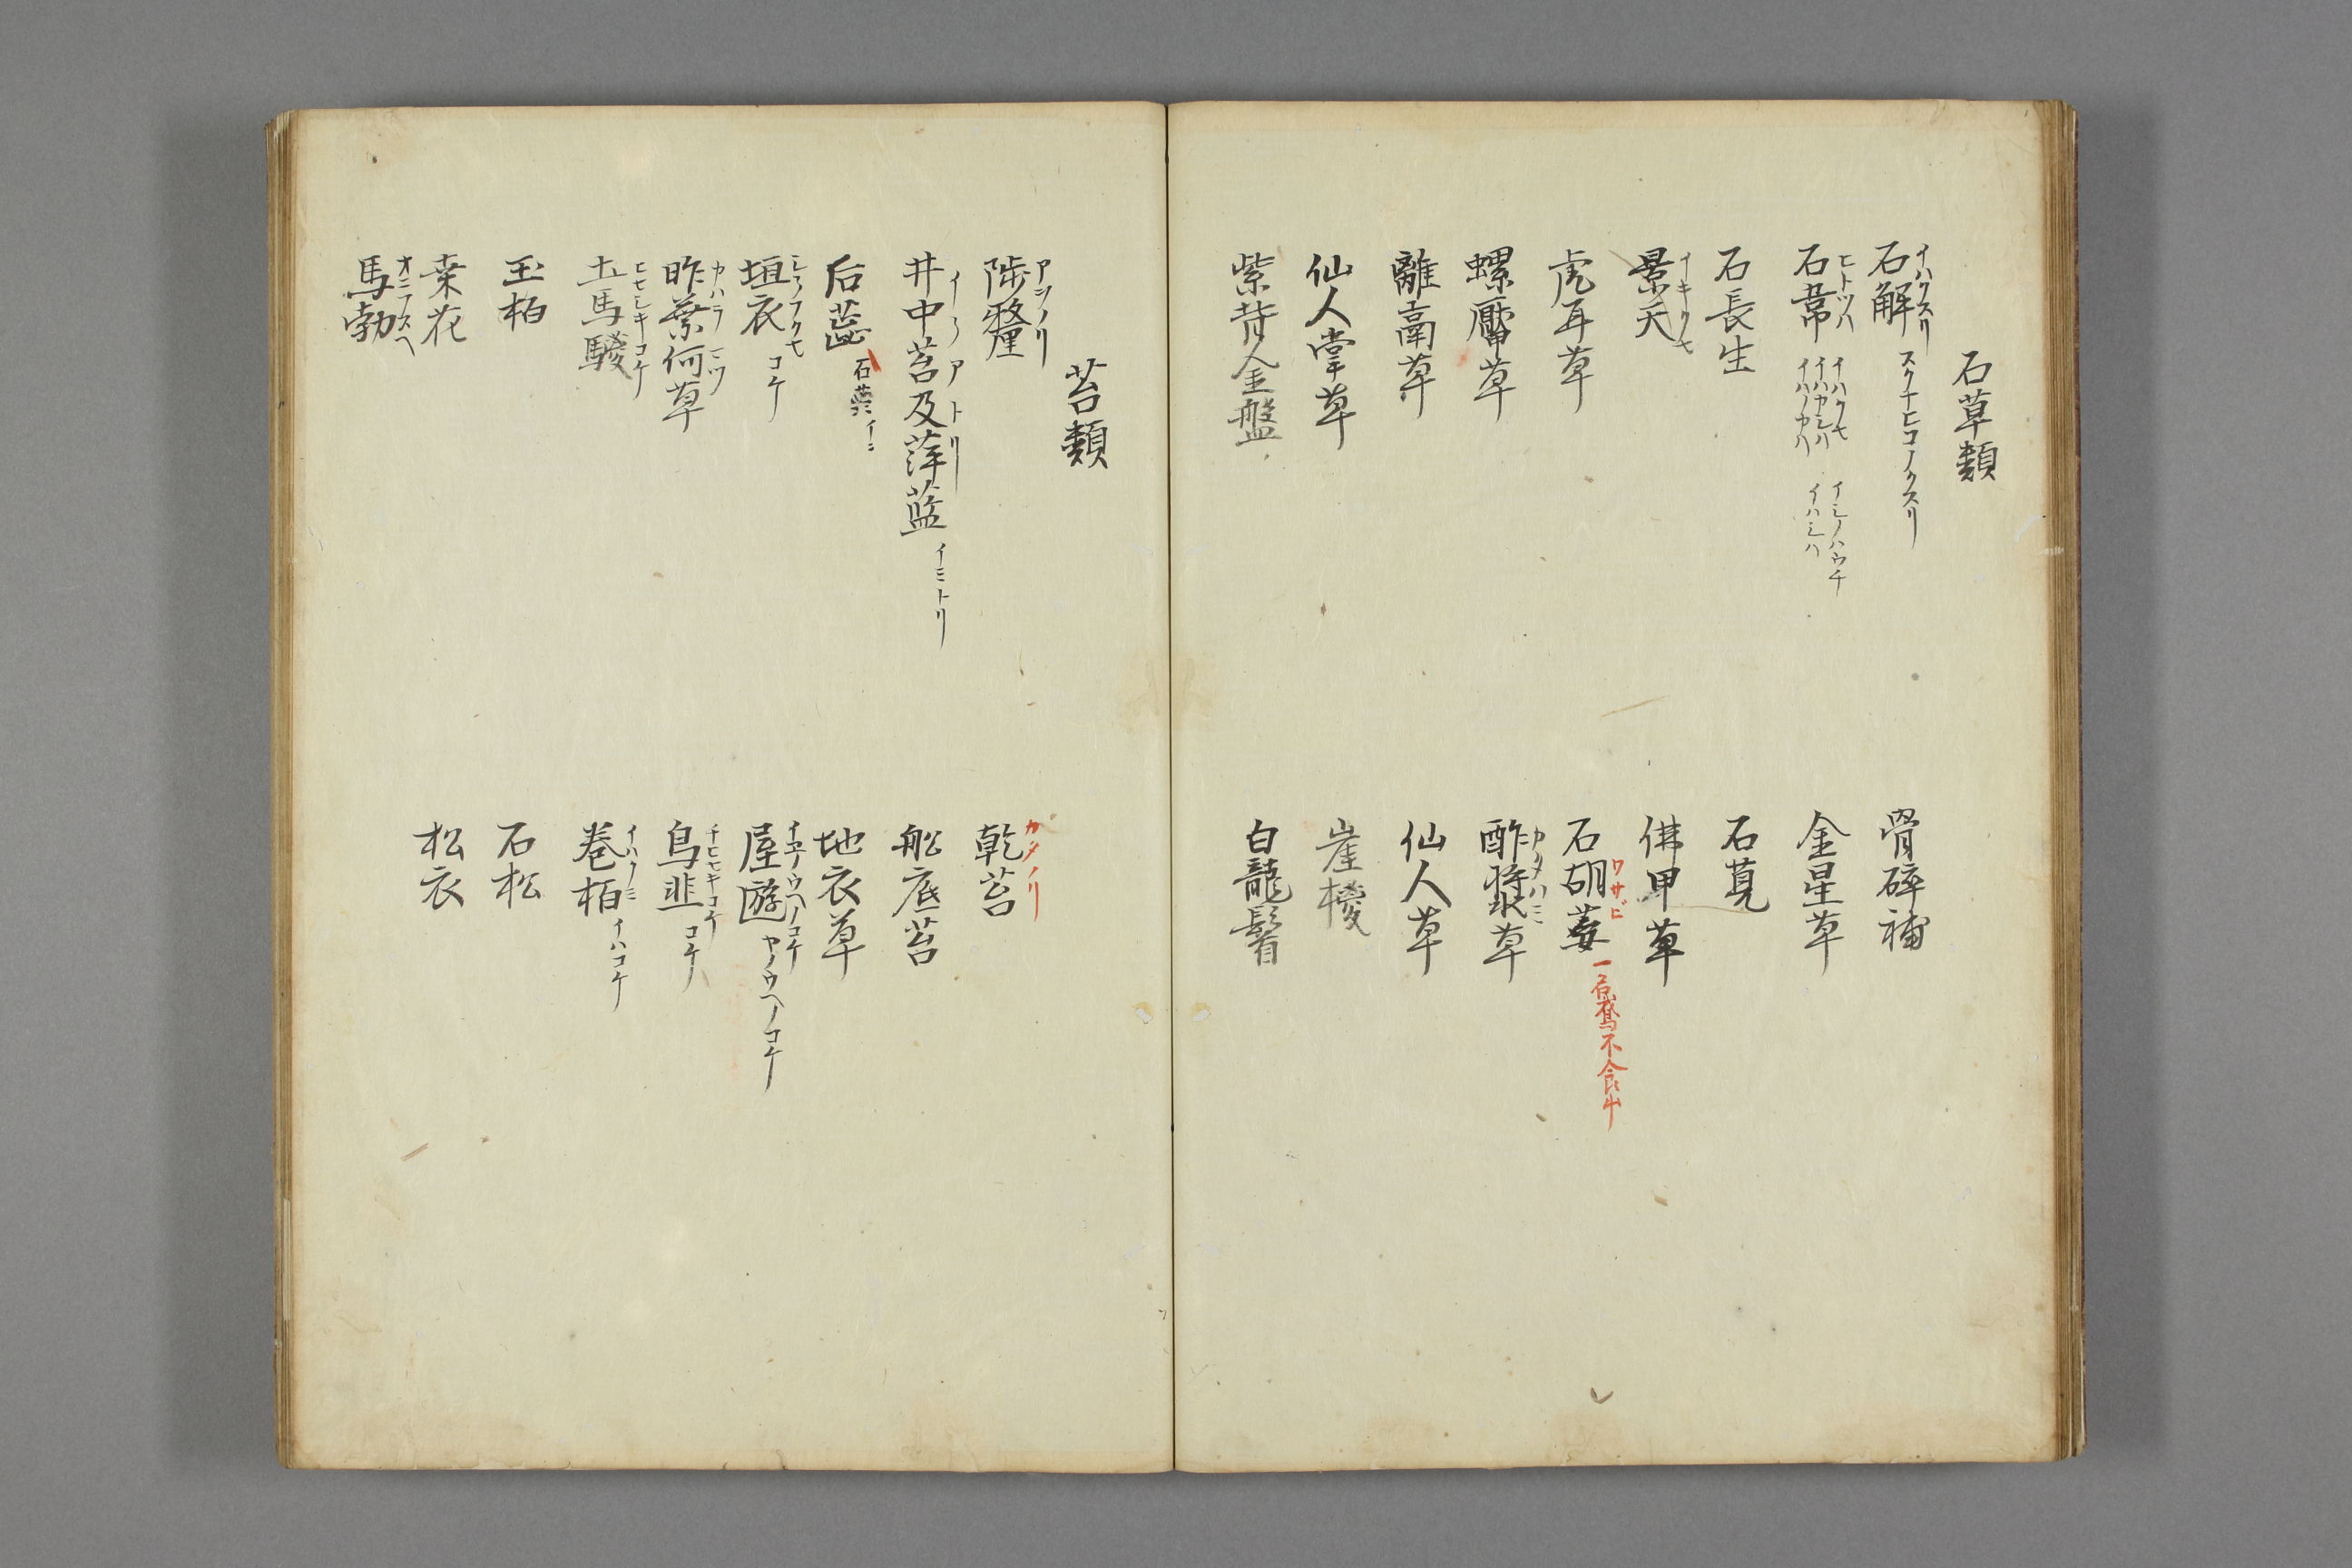 石草類
イハクスリ
石解 スクナヒコノクスリ
骨碎補
ヒトツハ
石韋 イハクセ イハカシハ イハノカハ イミノハウチ イハミハ
金星草
石長生
石莧
イキクサ
景天
佛甲草
虎耳草
ワサビ
石胡荽 一名鵞不食艸
螺厴草
カタハミ
酢漿草
離鬲草
仙人草
仙人掌草
崖椶
紫背金盤
白龍鬚
苔類
アツノリ
陟釐
カタノリ
乾苔
井中苔及萍藍 イミトリ
船底苔
后蕋 石蘂
地衣草
垣衣 コケ
イヱノウヘノコケ
屋遊 ヤノウヘノコケ
昨葉何草
烏韭 コケ
土馬騣
イハクミ
卷栢 イハコケ
玉栢
石松
桒花
松衣
オニフスヘ
馬勃